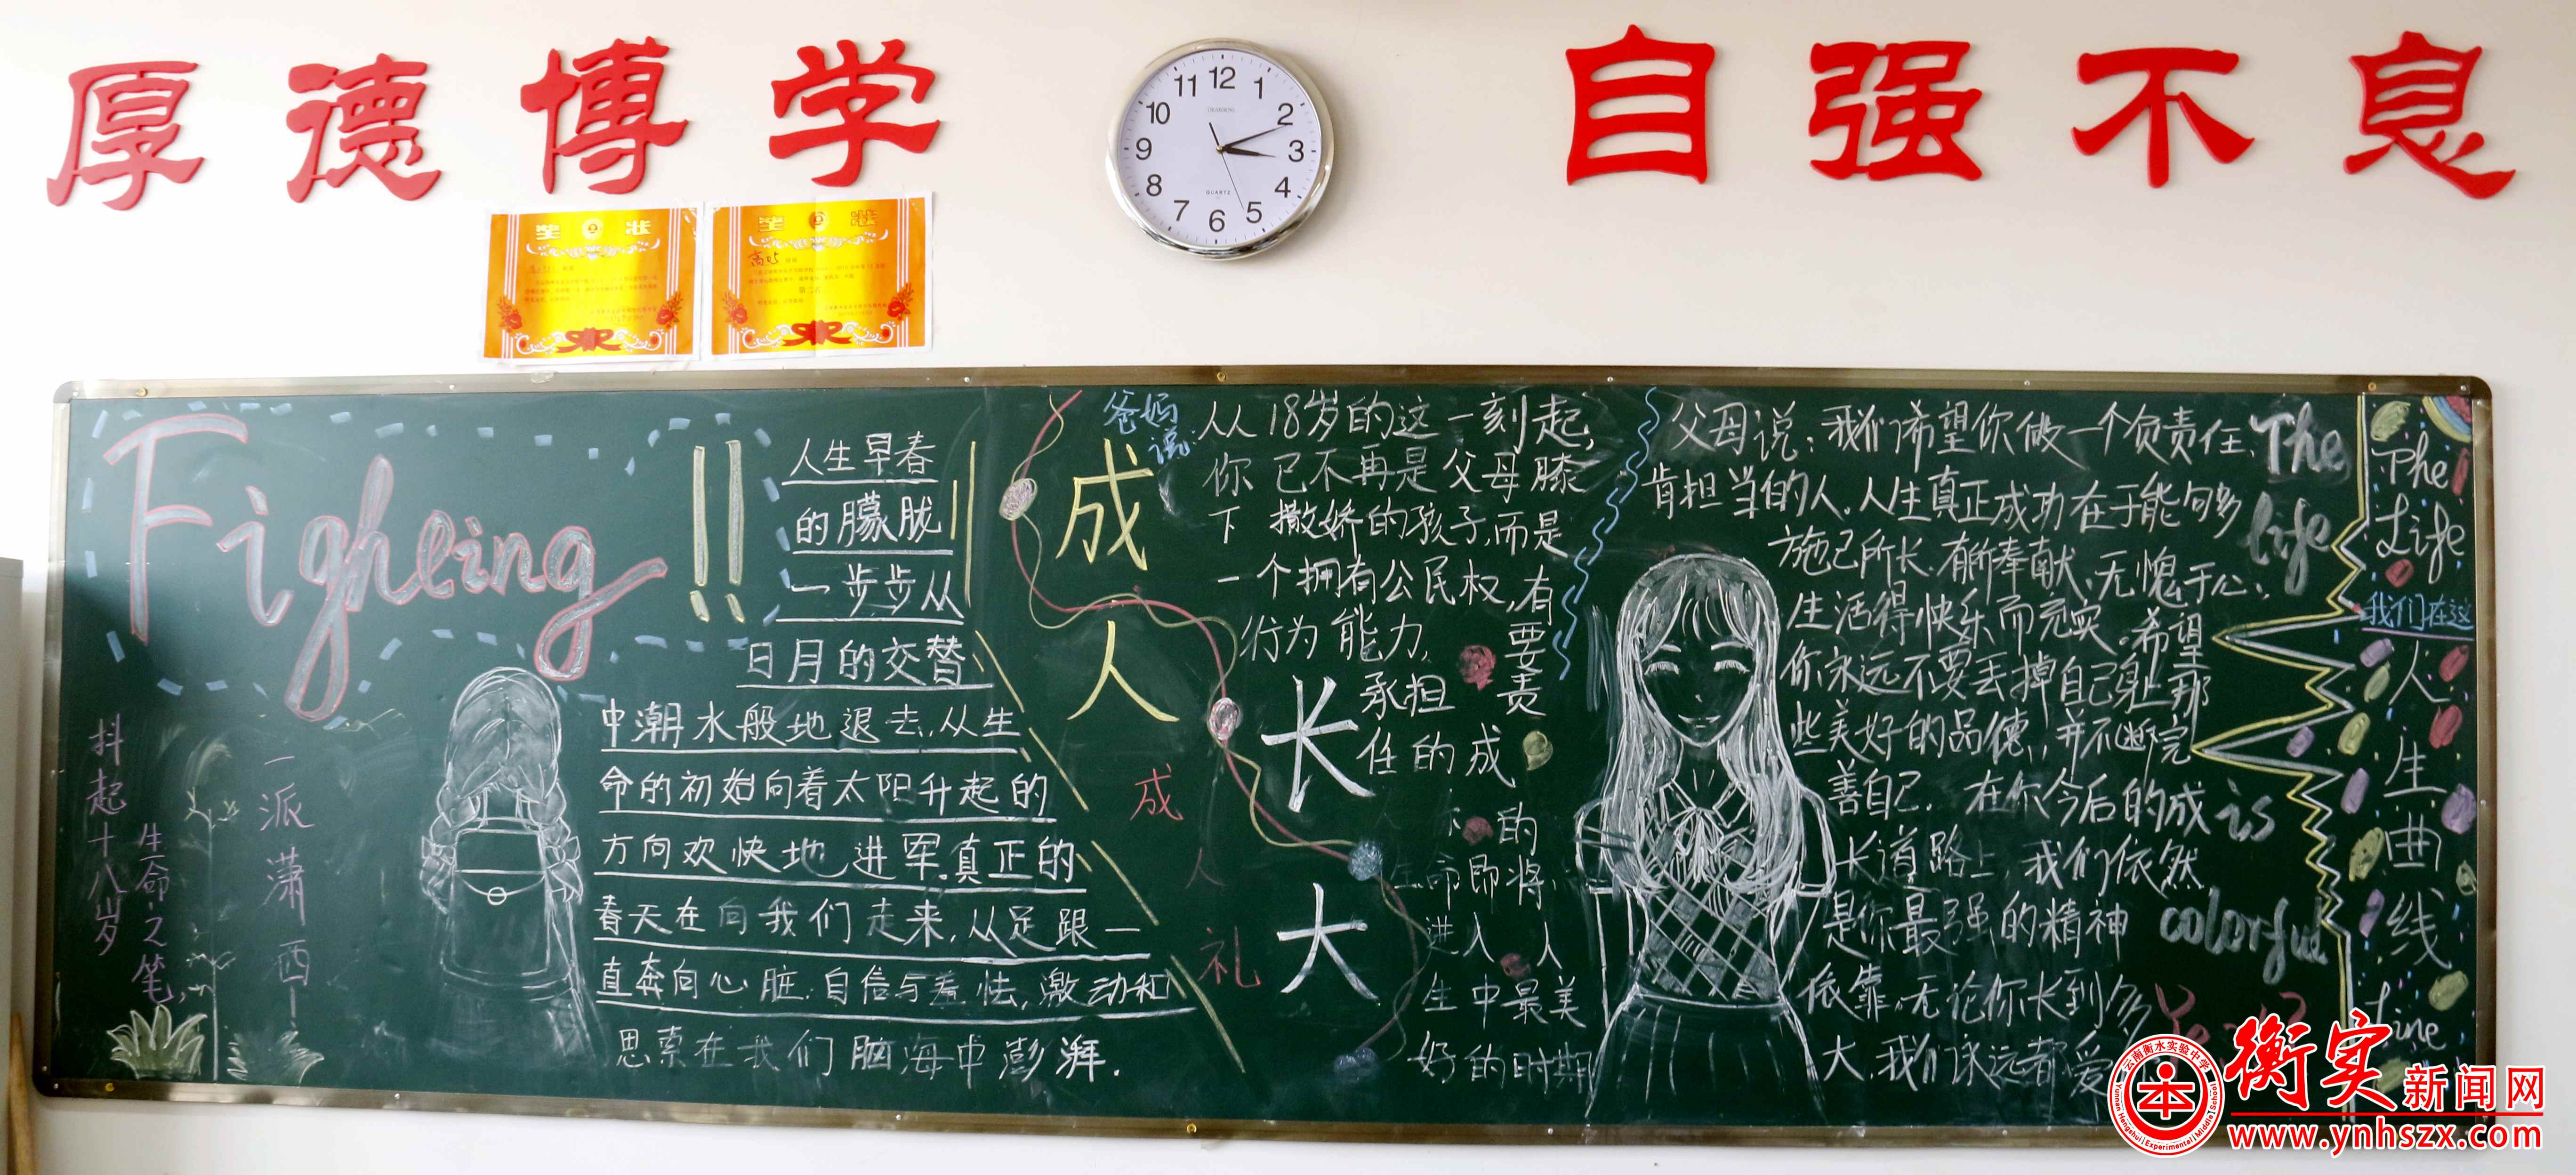 厚德博学
自强不息
11 12 1
10 2
9 3
8 4
7 6 5
QUARTZ
奖状
奖状
第二名
Fighting!!
抖起十八岁
生命之笔,
一派潇洒
人生早春
的朦胧
一步步从
日月的交替
中潮水般地退去,从生
命的初始向着太阳升起的
方向欢快地进军.真正的
春天在向我们走来,从足跟一
直奔向心脏.自信与羞怯,激动和
思索在我们脑海中澎湃.
成人
成人礼
爸妈说
从18岁的这一刻起,
你已不再是父母膝
下撒娇的孩子,而是
一个拥有公民权,有
行为能力,要
承担责
任的成
人的
生命即将
进入人
生中最美
好的时期
长大
父母说:我们希望你做一个负责任、
肯担当的人.人生真正成功在于能够多
施己所长.有所奉献、无愧于心;
生活得快乐而充实.希望
你永远不要丢掉自己身上那
些美好的品德,并不断完
善自己.在你今后的成
长道路上,我们依然
是你最强的精神
依靠,无论你长到多
大,我们永远都爱
The
life
is
colorful
The
Life
我们在这
人生曲线
Line
云南衡水实验中学
Yunnan Hengshui Experimental Middle School
衡实新闻网
www.ynhszx.com